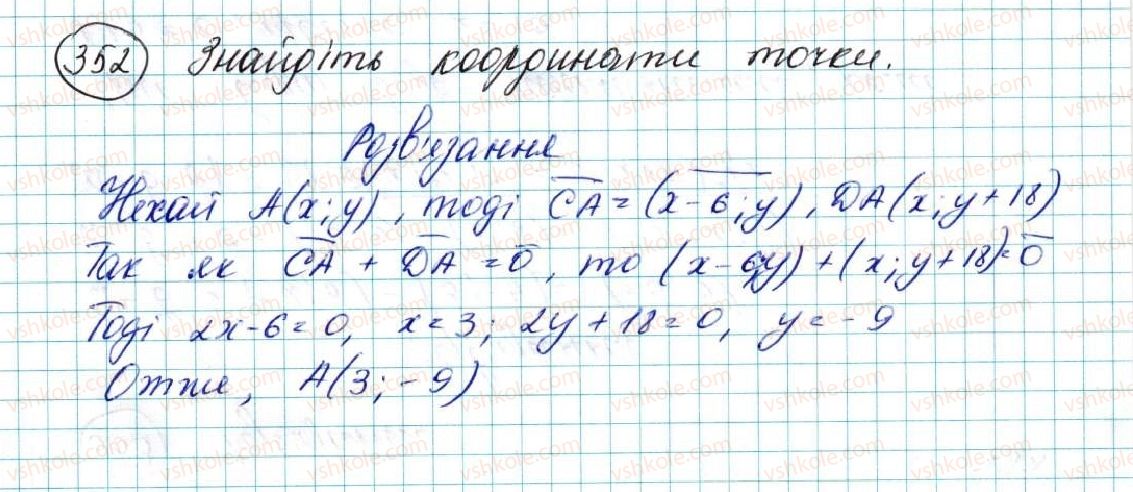 352 Знайдіть координати точки.
Розв'язання
Нехай A(x; y), тоді C̅A̅ = (x - 6; y), DA(x; y + 18)
Так як C̅A̅ + D̅A̅ = 0̅, то (x - 6; y) + (x; y + 18) = 0̅
Тоді 2x - 6 = 0, x = 3; 2y + 18 = 0, y = - 9
Отже, A(3; - 9)
vshkole.com